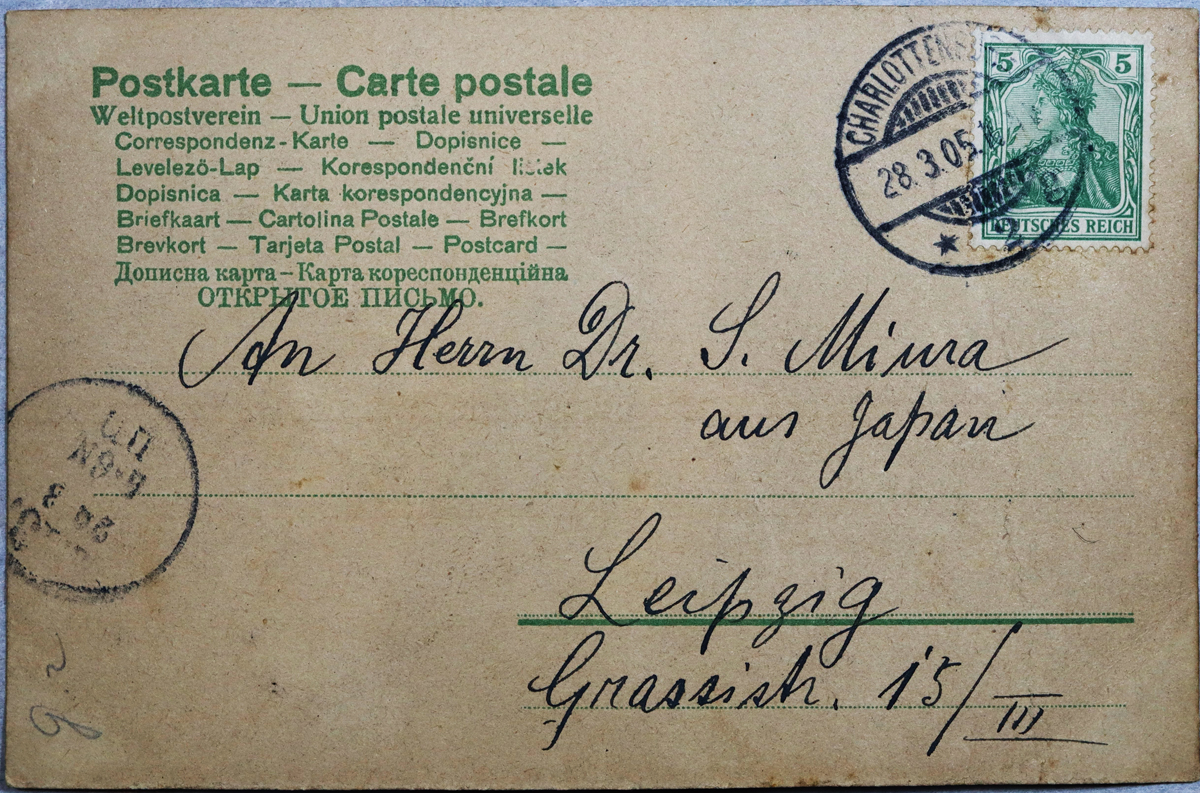 Postkarte — Carte postale
Weltpostverein — Union postale universelle
Correspondenz-Karte — Dopisnice —
Levelező-Lap — Korespondenční lístek
Dopisnica — Karta korespondencyjna —
Briefkaart — Cartolina Postale — Brefkort
Brevkort — Tarjeta Postal — Postcard —
Дописна карта — Карта кореспонденційна
ОТКРЫТОЕ ПИСЬМО.
5 5
DEUTSCHES REICH
28.3.05.
An Herrn Dr. S. Miura
aus Japan
Leipzig
Grassistr. 15/III